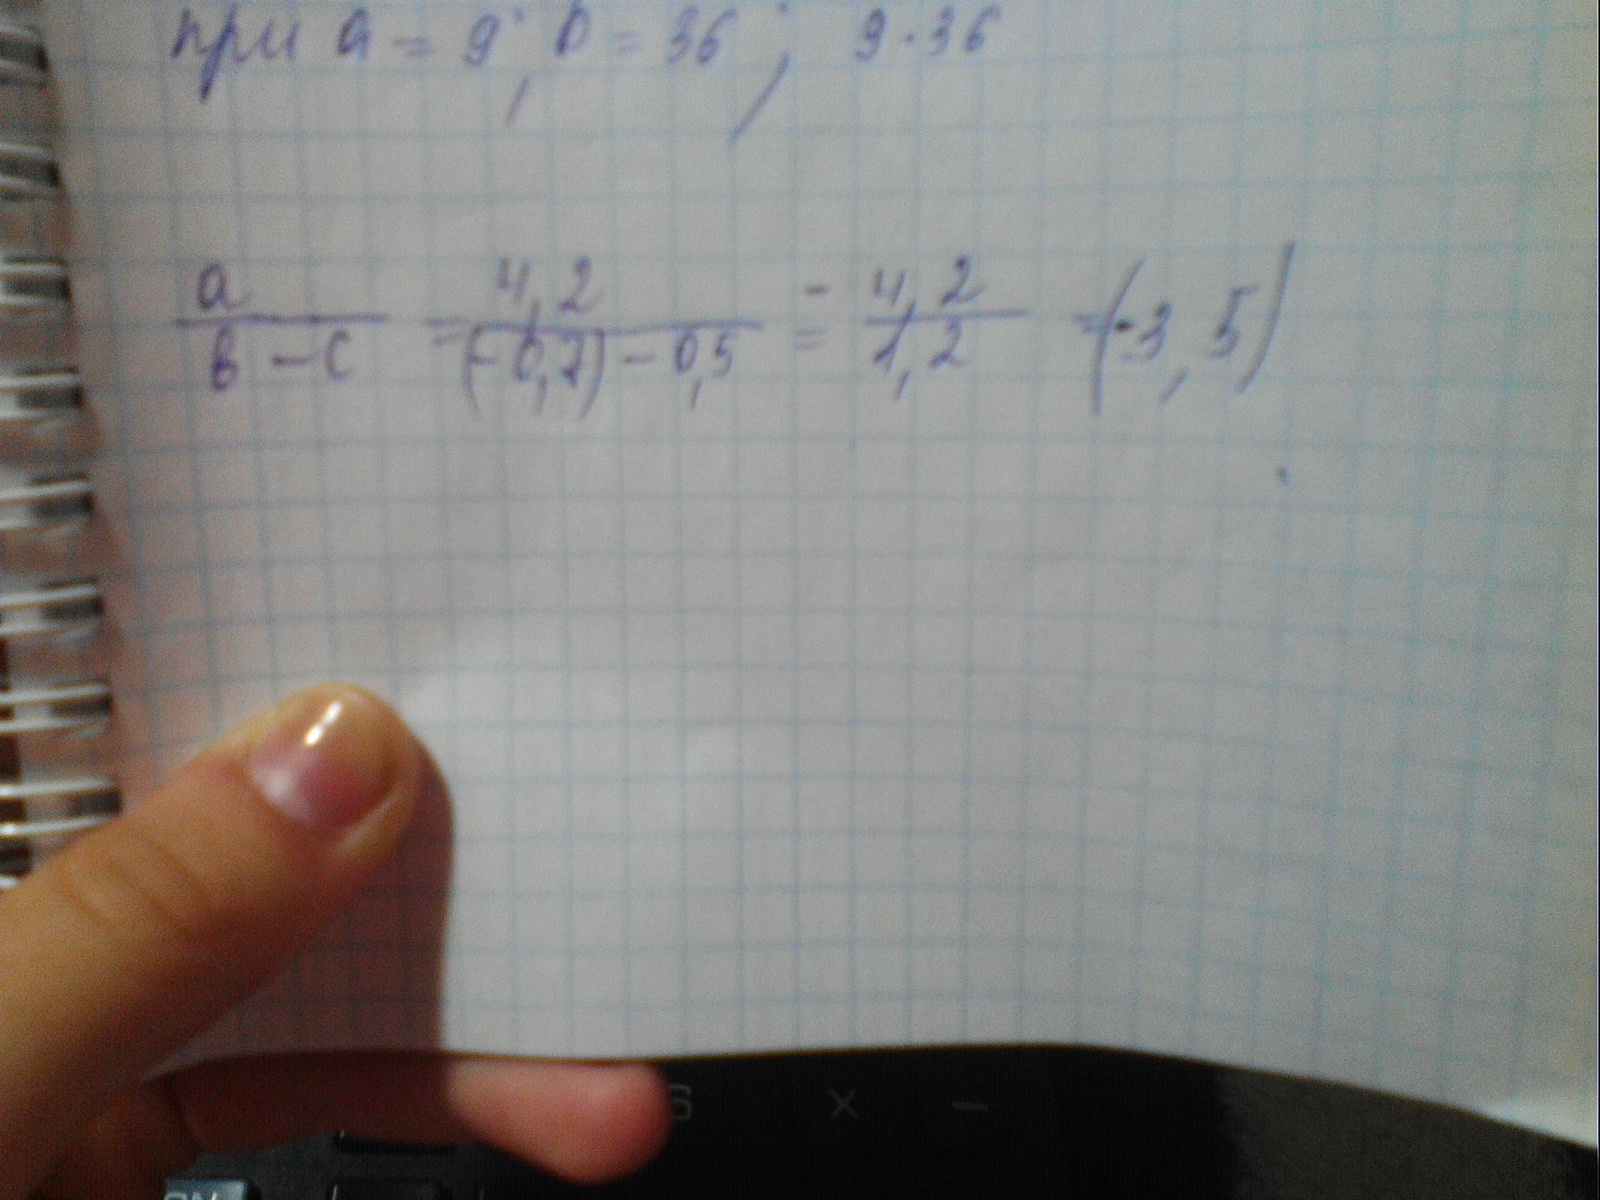 при a = 9, b = 36; 9·36
a/(в - c) = 4,2/((-0,7) - 0,5) = - 4,2/1,2 = (-3,5)
S × −
ON